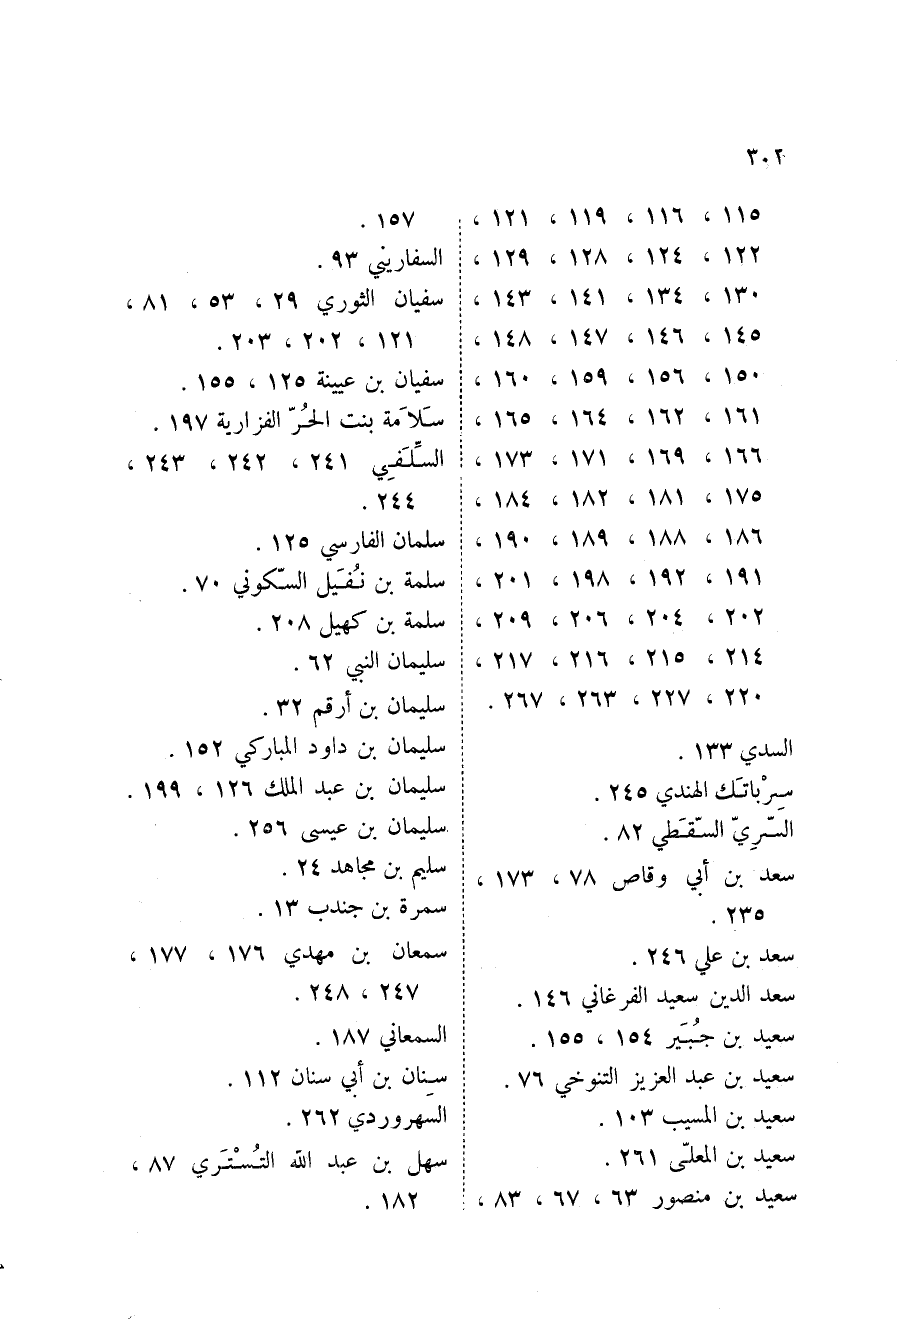 ٣٠٢
١١٥ ، ١١٦ ، ١١٩ ، ١٢١ ،
١٢٢ ، ١٢٤ ، ١٢٨ ، ١٢٩ ،
١٣٠ ، ١٣٤ ، ١٤١ ، ١٤٣ ،
١٤٥ ، ١٤٦ ، ١٤٧ ، ١٤٨ ،
١٥٠ ، ١٥٦ ، ١٥٩ ، ١٦٠ ،
١٦١ ، ١٦٢ ، ١٦٤ ، ١٦٥ ،
١٦٦ ، ١٦٩ ، ١٧١ ، ١٧٣ ،
١٧٥ ، ١٨١ ، ١٨٢ ، ١٨٤ ،
١٨٦ ، ١٨٨ ، ١٨٩ ، ١٩٠ ،
١٩١ ، ١٩٢ ، ١٩٨ ، ٢٠١ ،
٢٠٢ ، ٢٠٤ ، ٢٠٦ ، ٢٠٩ ،
٢١٤ ، ٢١٥ ، ٢١٦ ، ٢١٧ ،
٢٢٠ ، ٢٢٧ ، ٢٦٣ ، ٢٦٧ .
السدي ١٣٣ .
سِرْباتَك الهندي ٢٤٥ .
السَّرِيّ السَّقَطي ٨٢ .
سعد بن أبي وقاص ٧٨ ، ١٧٣ ،
٢٣٥ .
سعد بن علي ٢٤٦ .
سعد الدين سعيد الفرغاني ١٤٦ .
سعيد بن جُبَير ١٥٤ ، ١٥٥ .
سعيد بن عبد العزيز التنوخي ٧٦ .
سعيد بن المسيب ١٠٣ .
سعيد بن المعلّى ٢٦١ .
سعيد بن منصور ٦٣ ، ٦٧ ، ٨٣ ،
١٥٧ .
السفاريني ٩٣ .
سفيان الثوري ٢٩ ، ٥٣ ، ٨١ ،
١٢١ ، ٢٠٢ ، ٢٠٣ .
سفيان بن عيينة ١٢٥ ، ١٥٥ .
سَلاَمة بنت الحُرّ الفزارية ١٩٧ .
السِّلَفِي ٢٤١ ، ٢٤٢ ، ٢٤٣ ،
٢٤٤ .
سلمان الفارسي ١٢٥ .
سلمة بن نُفَيل السّكوني ٧٠ .
سلمة بن كهيل ٢٠٨ .
سليمان النبي ٦٢ .
سليمان بن أرقم ٣٢ .
سليمان بن داود المباركي ١٥٢ .
سليمان بن عبد الملك ١٢٦ ، ١٩٩ .
سليمان بن عيسى ٢٥٦ .
سليم بن مجاهد ٢٤ .
سمرة بن جندب ١٣ .
سمعان بن مهدي ١٧٦ ، ١٧٧ ،
٢٤٧ ، ٢٤٨ .
السمعاني ١٨٧ .
سِنان بن أبي سنان ١١٢ .
السهروردي ٢٦٢ .
سهل بن عبد الله التُسْتَري ٨٧ ،
١٨٢ .